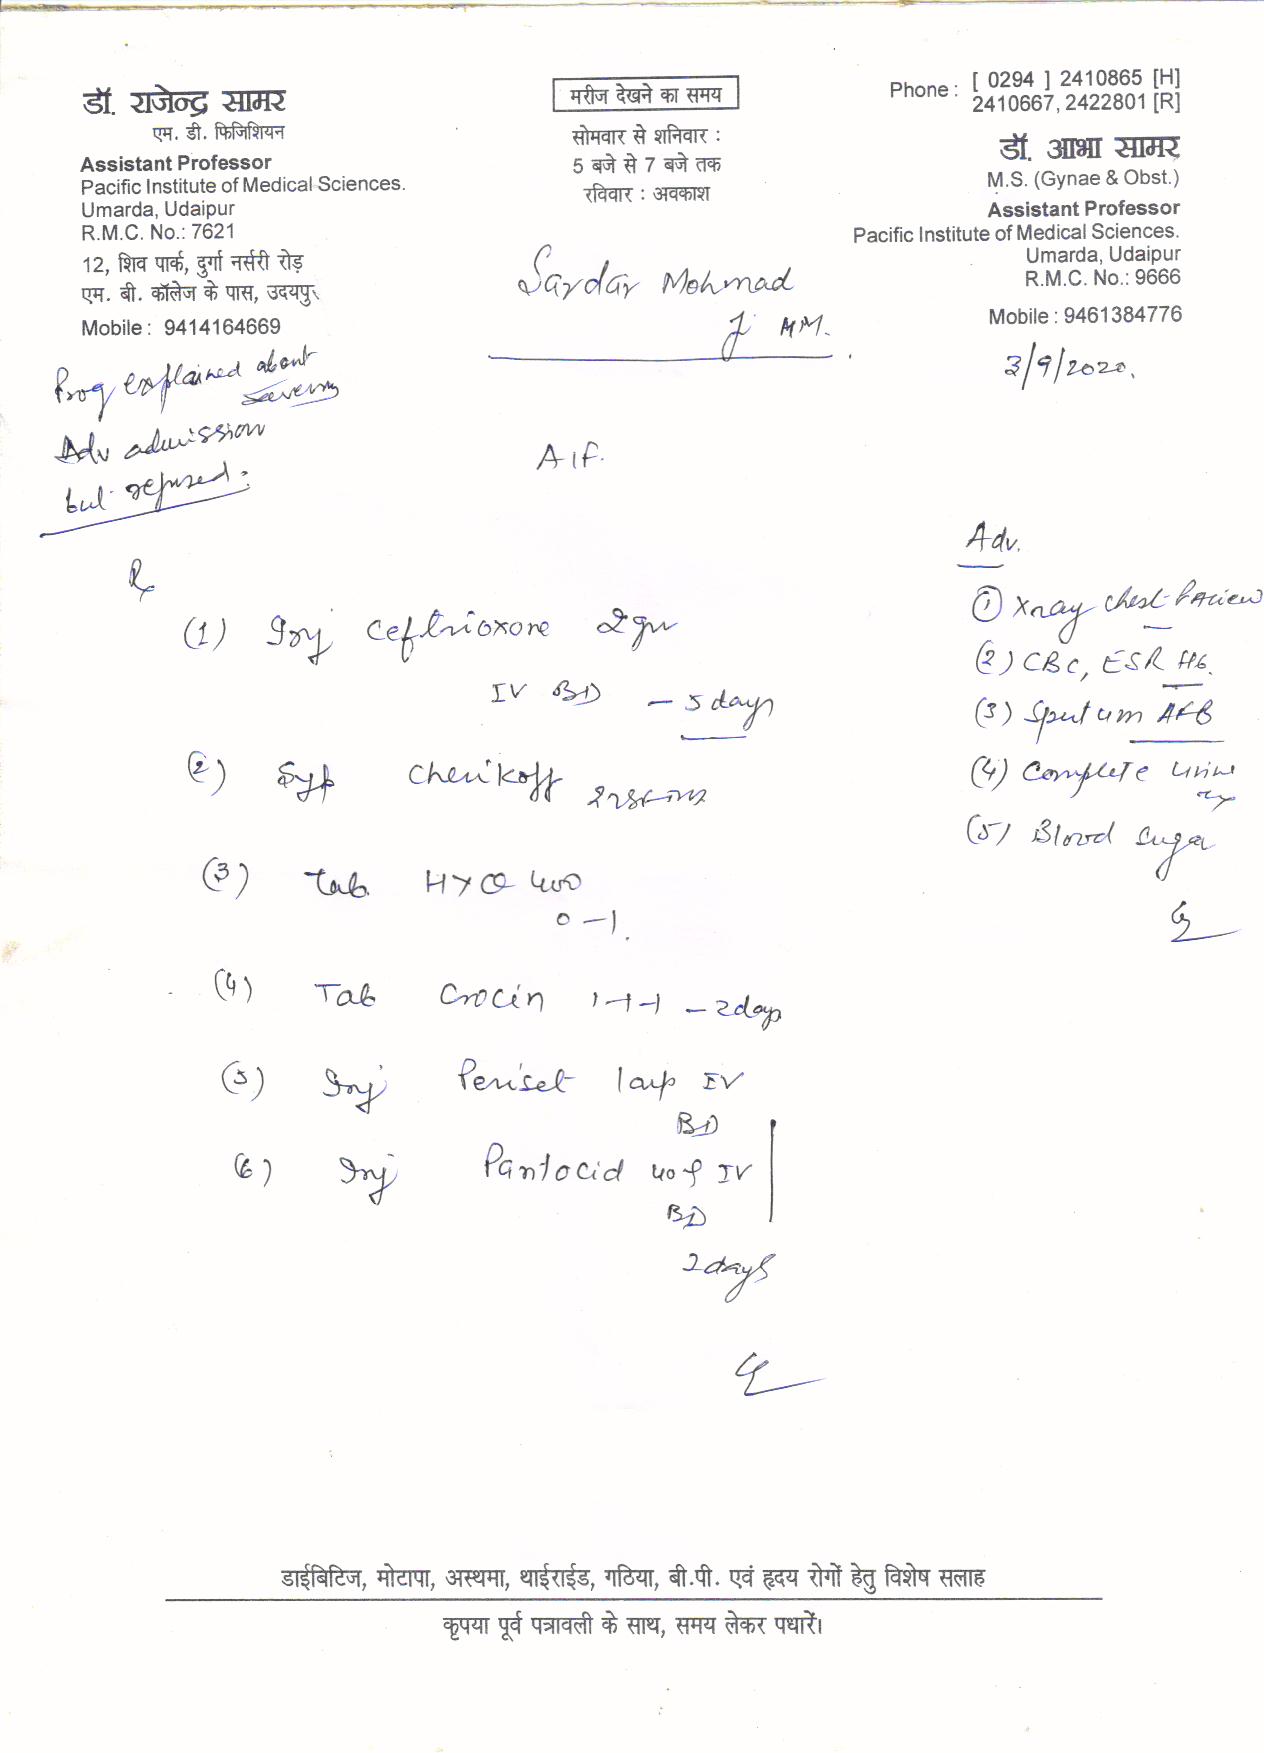 डॉ. राजेन्द्र सामर
एम. डी. फिजिशियन
Assistant Professor
Pacific Institute of Medical Sciences.
Umarda, Udaipur
R.M.C. No.: 7621
12, शिव पार्क, दुर्गा नर्सरी रोड़
एम. बी. कॉलेज के पास, उदयपुर
Mobile : 9414164669
मरीज देखने का समय
सोमवार से शनिवार :
5 बजे से 7 बजे तक
रविवार : अवकाश
Phone : [ 0294 ] 2410865 [H]
2410667, 2422801 [R]
डॉ. आभा सामर
M.S. (Gynae & Obst.)
Assistant Professor
Pacific Institute of Medical Sciences.
Umarda, Udaipur
R.M.C. No.: 9666
Mobile : 9461384776
Sardar Mohmad
3/9/2020.
Prog explained about
Adv admission
but refused.
Adv.
(1) Xray chest PA view
(2) CBC, ESR
(3) Sputum AFB
(4) Complete urine
(5) Blood Sugar
Rx
(1) Inj Ceftrioxone 2gm
IV BD - 5 days
(2) Syp Cherikoff
(3) Tab 400
0-1
(4) Tab Crocin 1-1-1 - 2 days
(5) Inj Periset 1 amp IV
BD
(6) Inj Pantocid 40 IV
BD
2 days
डाईबिटिज, मोटापा, अस्थमा, थाईराईड, गठिया, बी.पी. एवं हृदय रोगों हेतु विशेष सलाह
कृपया पूर्व पत्रावली के साथ, समय लेकर पधारें।